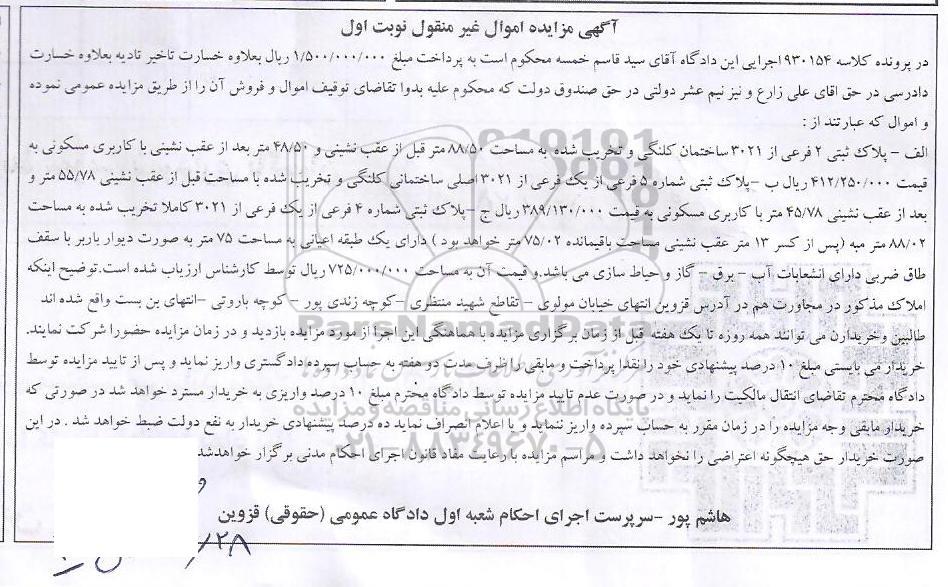 آگهی مزایده اموال غیر منقول نوبت اول
در پرونده کلاسه ۹۳۰۱۵۴ اجرایی این دادگاه آقای سید قاسم خمسه محکوم است به پرداخت مبلغ ۱/۵۰۰/۰۰۰/۰۰۰ ریال بعلاوه خسارت تاخیر تادیه بعلاوه خسارت
دادرسی در حق اقای علی زارع و نیز نیم عشر دولتی در حق صندوق دولت که محکوم علیه بدوا تقاضای توقیف اموال و فروش آن را از طریق مزایده عمومی نموده
و اموال که عبارتند از :
الف – پلاک ثبتی ۲ فرعی از ۳۰۲۱ ساختمان کلنگی و تخریب شده به مساحت ۸۸/۵۰ متر قبل از عقب نشینی و ۴۸/۵۰ متر بعد از عقب نشینی با کاربری مسکونی به
قیمت ۴۱۲/۲۵۰/۰۰۰ ریال ب –پلاک ثبتی شماره ۵ فرعی از یک فرعی از ۳۰۲۱ اصلی ساختمانی کلنگی و تخریب شده با مساحت قبل از عقب نشینی ۵۵/۷۸ متر و
بعد از عقب نشینی ۴۵/۷۸ متر با کاربری مسکونی به قیمت ۳۸۹/۱۳۰/۰۰۰ ریال ج –پلاک ثبتی شماره ۴ فرعی از یک فرعی از ۳۰۲۱ کاملا تخریب شده به مساحت
۸۸/۰۲ متر مبه (پس از کسر ۱۳ متر عقب نشینی مساحت باقیمانده ۷۵/۰۲ متر خواهد بود ) دارای یک طبقه اعیانی به مساحت ۷۵ متر به صورت دیوار باربر با سقف
طاق ضربی دارای انشعابات آب – برق – گاز و حیاط سازی می باشد.و قیمت آن به مساحت ۷۲۵/۰۰۰/۰۰۰ ریال توسط کارشناس ارزیاب شده است.توضیح اینکه
املاک مذکور در مجاورت هم در آدرس قزوین انتهای خیابان مولوی – تقاطع شهید منتظری –کوچه زندی پور – کوچه باروتی –انتهای بن بست واقع شده اند
طالبین وخریدارن می توانند همه روزه تا یک هفته قبل از زمان برگزاری مزایده با هماهنگی این اجرا از مورد مزایده بازدید و در زمان مزایده حضورا شرکت نمایند.
خریدار می بایستی مبلغ ۱۰ درصد پیشنهادی خود را نقدا پرداخت و مابقی را ظرف مدت دو هفته به حساب سپرده دادگستری واریز نماید و پس از تایید مزایده توسط
دادگاه محترم تقاضای انتقال مالکیت را نماید و در صورت عدم تایید مزایده توسط دادگاه محترم مبلغ ۱۰ درصد واریزی به خریدار مسترد خواهد شد در صورتی که
خریدار مابقی وجه مزایده را در زمان مقرر به حساب سپرده واریز ننماید و یا اعلام انصراف نماید ده درصد پیشنهادی خریدار به نفع دولت ضبط خواهد شد . در این
صورت خریدار حق هیچگونه اعتراضی را نخواهد داشت و مراسم مزایده با رعایت مفاد قانون اجرای احکام مدنی برگزار خواهدشد
هاشم پور –سرپرست اجرای احکام شعبه اول دادگاه عمومی (حقوقی) قزوین
ParsNamadData
پایگاه اطلاع رسانی مناقصه و مزایده
۰۲۱-۸۸۳۴۹۶۷۰-۵
۲۸/